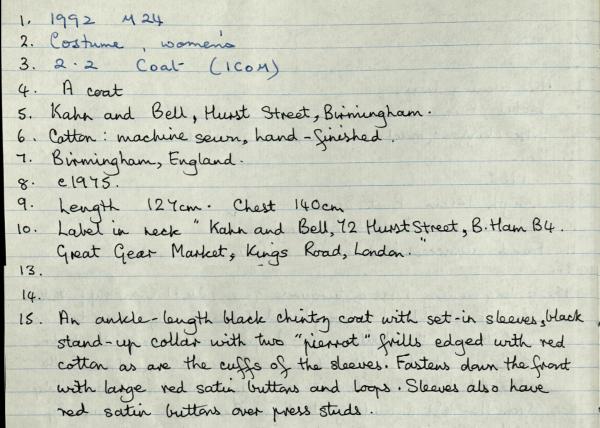 1. 1992 M24
2. Costume, women's
3. 2.2 Coat (ICOM)
4. A coat
5. Kahn and Bell, Hurst Street, Birmingham.
6. Cotton: machine sewn, hand-finished.
7. Birmingham, England.
8. c1975.
9. Length 127cm. Chest 140cm
10. Label in neck "Kahn and Bell, 72 Hurst Street, B.Ham B4.
Great Gear Market, Kings Road, London."
13.
14.
15. An ankle-length black chintz coat with set-in sleeves, black
stand-up collar with two "pierrot" frills edged with red
cotton as are the cuffs of the sleeves. Fastens down the front
with large red satin buttons and loops. Sleeves also have
red satin buttons over press studs.